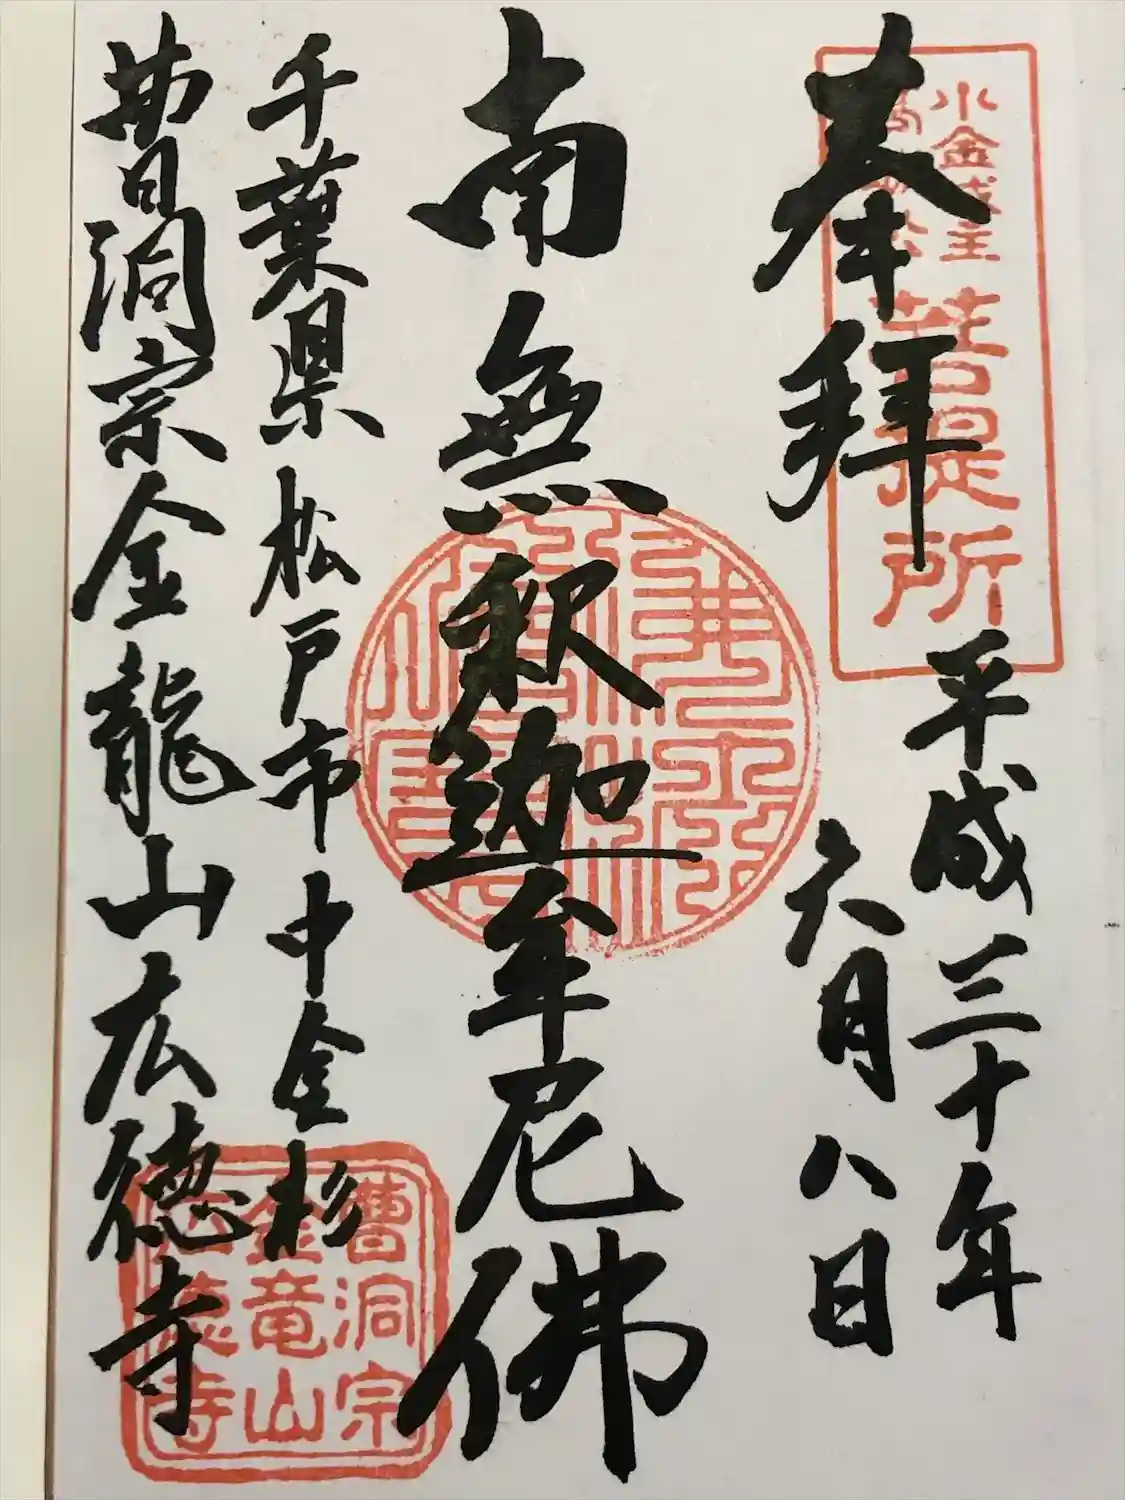 奉拝
平成三十年
六月八日
南無釈迦牟尼佛
千葉県松戸市中金杉
曹洞宗金龍山広徳寺
小金城主
菩提所
曹洞宗
金竜山
広徳寺